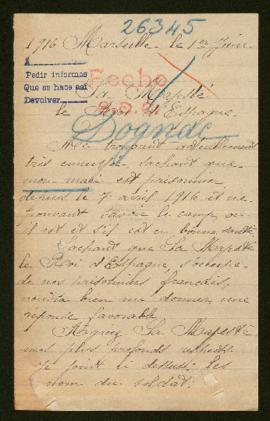 26345
1916 Marseille le 1er Juin
Pedir informes
Que se hace así
Devolver.
Fecho
Sa Majesté
le Roi d'Espagne
Me trouvant actuellement
très ennuyée, sachant que
mon mari est prisonnier
depuis le 7 avril 1916 et ne
pouvant savoir le camp où
il est et s'il est en bonne santé
Sachant que Sa Majesté
le Roi d'Espagne s'occupe
de nos prisonniers français,
voudra bien me donner une
réponse favorable
Sa Majesté
mes plus profonds respects
Je joint ci dessus les
nom du soldat.